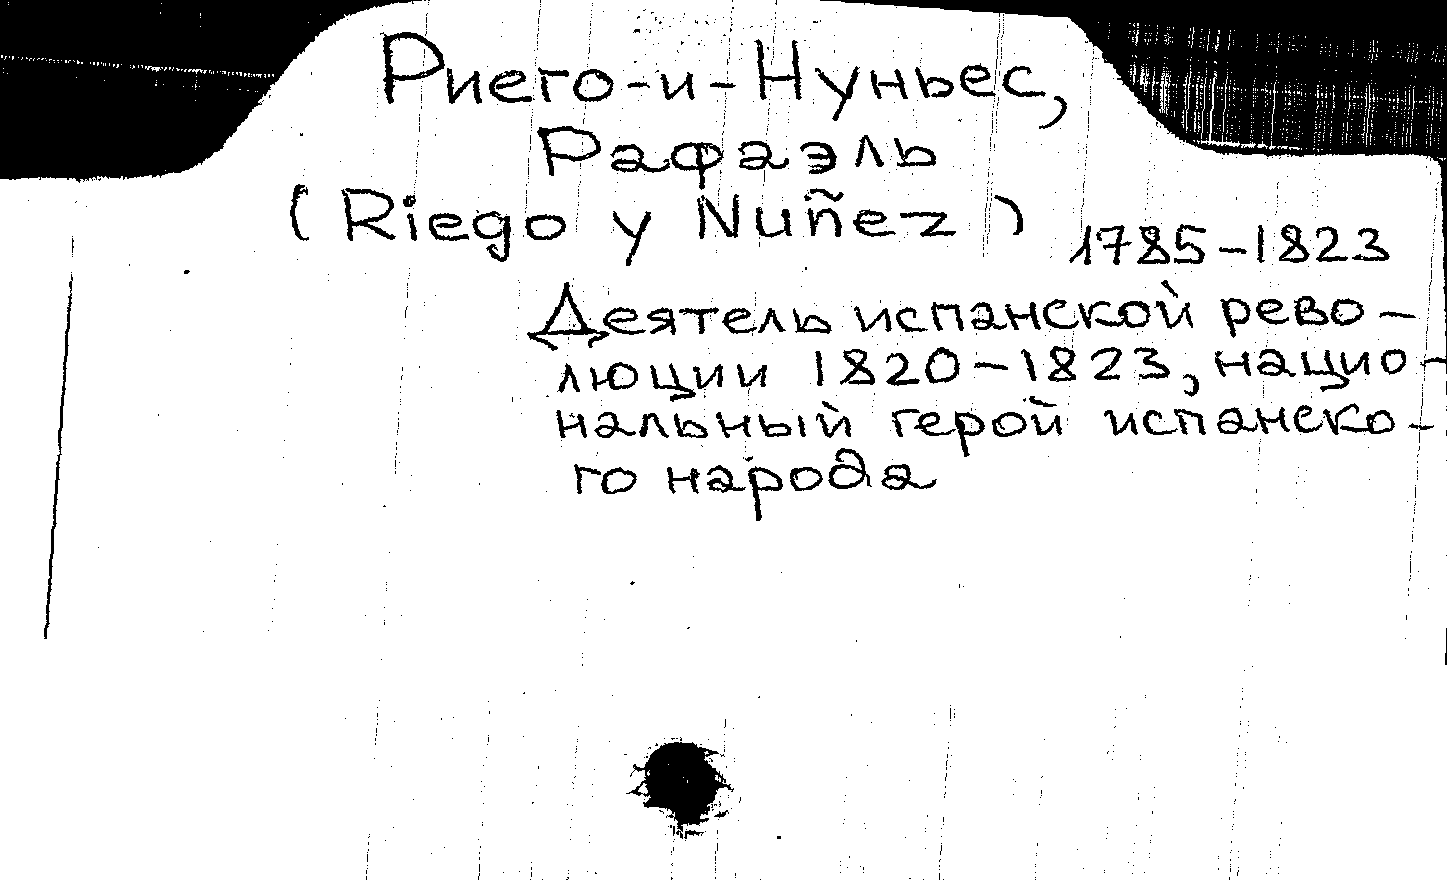 Риего-и-Нуньес,
Рафаэль
(Riego y Nuñez)
1785-1823
Деятель испанской рево-
люции 1820-1823, нацио-
нальный герой испанско-
го народа